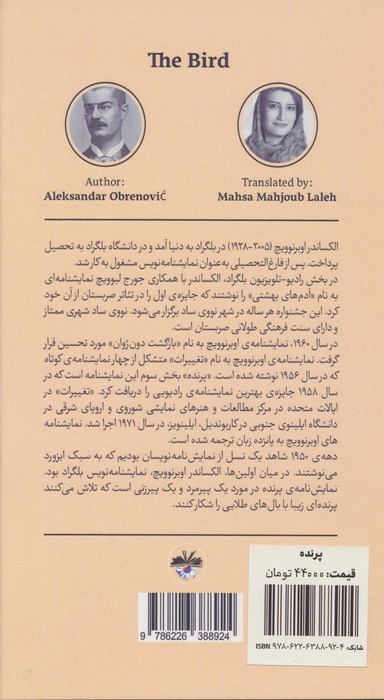 The Bird
Author:
Aleksandar Obrenović
Translated by:
Mahsa Mahjoub Laleh
الکساندر اوبرنوویچ (۲۰۰۵-۱۹۲۸) در بلگراد به دنیا آمد و در دانشگاه بلگراد به تحصیل
پرداخت. پس از فارغ‌التحصیلی به‌عنوان نمایشنامه‌نویس مشغول به‌کار شد.
در بخش رادیو-تلویزیون بلگراد، الکساندر با همکاری جورج لیوویچ نمایشنامه‌ای
به نام «آدم‌های بهشتی» را نوشتند که جایزه‌ی اول را در تئاتر صربستان از آن خود
کرد. این جشنواره هر ساله در شهر نووی ساد برگزار می‌شود. نووی ساد شهری ممتاز
و دارای سنت فرهنگی طولانی صربستان است.
در سال ۱۹۶۰، نمایشنامه‌ی اوبرنوویچ به نام «بازگشت دون‌ژوان» مورد تحسین قرار
گرفت. نمایشنامه‌ی اوبرنوویچ به نام «تغییرات» متشکل از چهار نمایشنامه‌ی کوتاه
که در سال ۱۹۵۶ نوشته شده است. «پرنده» بخش سوم این نمایشنامه است که در
سال ۱۹۵۸ جایزه‌ی بهترین نمایشنامه‌ی رادیویی را دریافت کرد. «تغییرات» در
ایالات متحده در مرکز مطالعات و هنرهای نمایشی شوروی و اروپای شرقی در
دانشگاه ایلینوی جنوبی در کاربوندیل، ایلینویز، در سال ۱۹۷۱ اجرا شد. نمایشنامه
های اوبرنوویچ به پانزده زبان ترجمه شده است.
دهه‌ی ۱۹۵۰ شاهد یک نسل از نمایش‌نامه‌نویسان بودیم که به سبک ابزورد
می‌نوشتند. در میان اولین‌ها، الکساندر اوبرنوویچ، نمایشنامه‌نویس بلگراد بود.
نمایش‌نامه‌ی پرنده در مورد یک پیرمرد و یک پیرزنی است که تلاش می‌کنند
پرنده‌ای زیبا با بال‌های طلایی را شکار کنند.
9 786226 388924
پرنده
قیمت: ۴۴۰۰۰ تومان
شابک: ۴-۹۲-۶۳۸۸-۶۲۲-۹۷۸ ISBN